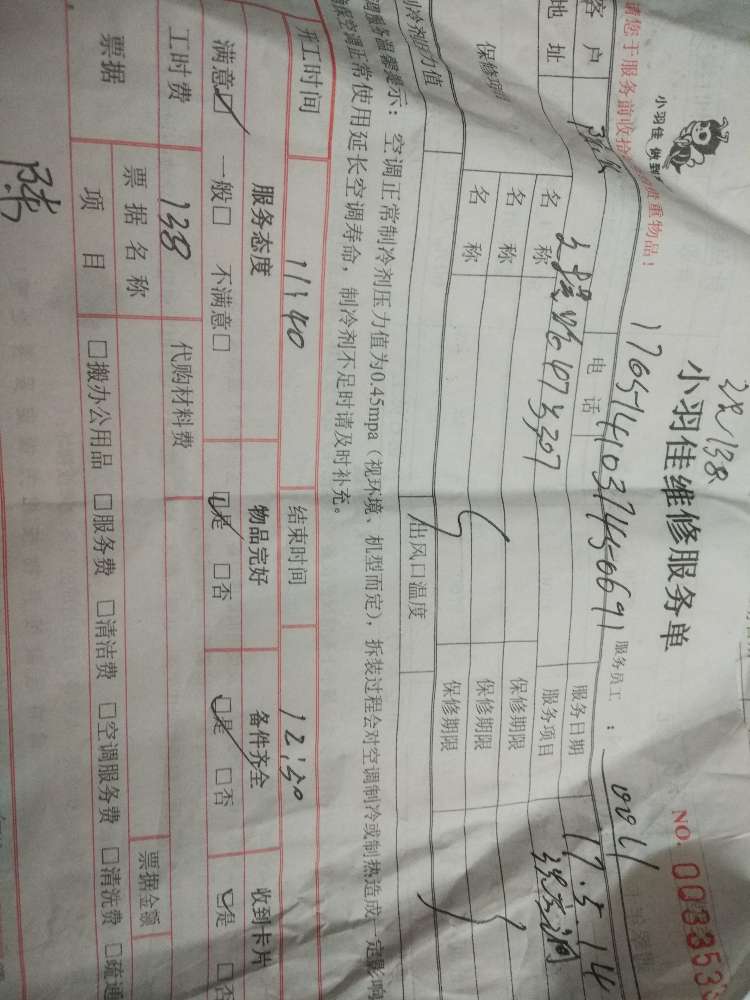 请您于服务前收拾 贵重物品!
小羽佳 做到
现138
小羽佳维修服务单
NO. 003353
17651410374450691 服务员工: 0021
客户 陈 电话 服务日期 17.5.14
地址 服务项目
名称 保修期限
名称 保修期限
保修期 名称 保修期限
制冷剂压力值 出风口温度
调服务温馨提示:空调正常制冷剂压力值为0.45mpa(视环境、机型而定),拆装过程会对空调制冷或制热造成一定影响
空调正常使用延长空调寿命,制冷剂不足时请及时补充。
开工时间 11:40 结束时间 12:30
服务态度 物品完好 备件齐全 收到卡片
满意☑ 一般□ 不满意□ ☑是 □否 ☑是 □否 □是 □否
工时费 138 代购材料费
票据 票据名称 票据金额
项目 □搬办公用品 □服务费 □清洁费 □空调服务费 □清洗费 □疏通
陈